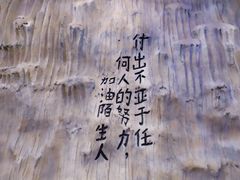 付出不亚于任
何人的努力，
加油陌生人